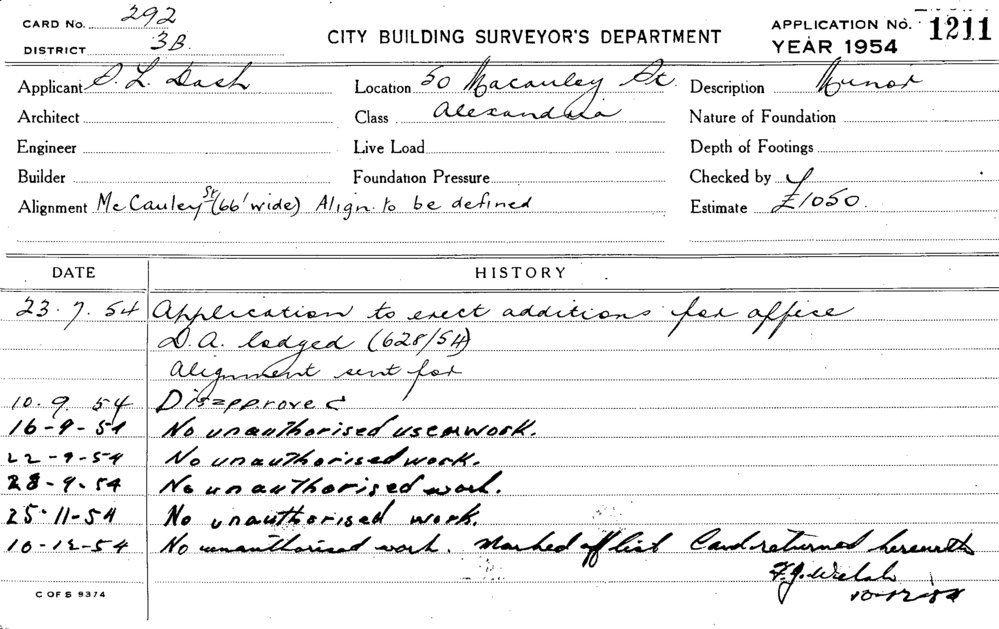 CARD No. 292
DISTRICT 3B
CITY BUILDING SURVEYOR'S DEPARTMENT
APPLICATION No. 1211
YEAR 1954
Applicant S. L. Dash Location 50 Macauley St. Description Minor
Architect Class Alexandria Nature of Foundation
Engineer Live Load Depth of Footings
Builder Foundation Pressure Checked by
Alignment McCauley St (66' wide) Align. to be defined Estimate £1050.
DATE HISTORY
23.7.54 Application to erect additions for office
D.A. lodged (628/54)
Alignment sent for
10.9.54 Disapproved
16-9-54 No unauthorised use or work.
22-9-54 No unauthorised work.
28-9-54 No unauthorised work.
25-11-54 No unauthorised work.
10-12-54 No unauthorised work. Marked off list Card returned herewith
F.J. Welsh
10-12-54
C OF S 9374